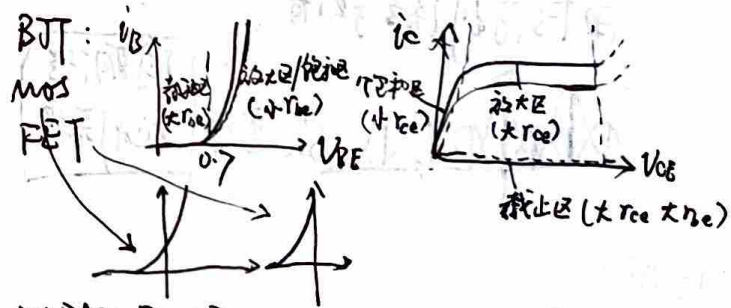 BJT: iB
iC
MOS
FET
截止区
(大rbe)
放大区/饱和区
(小rbe)
0.7
VBE
饱和区
(小rce)
放大区
(大rce)
VCE
截止区(大rce 大rbe)